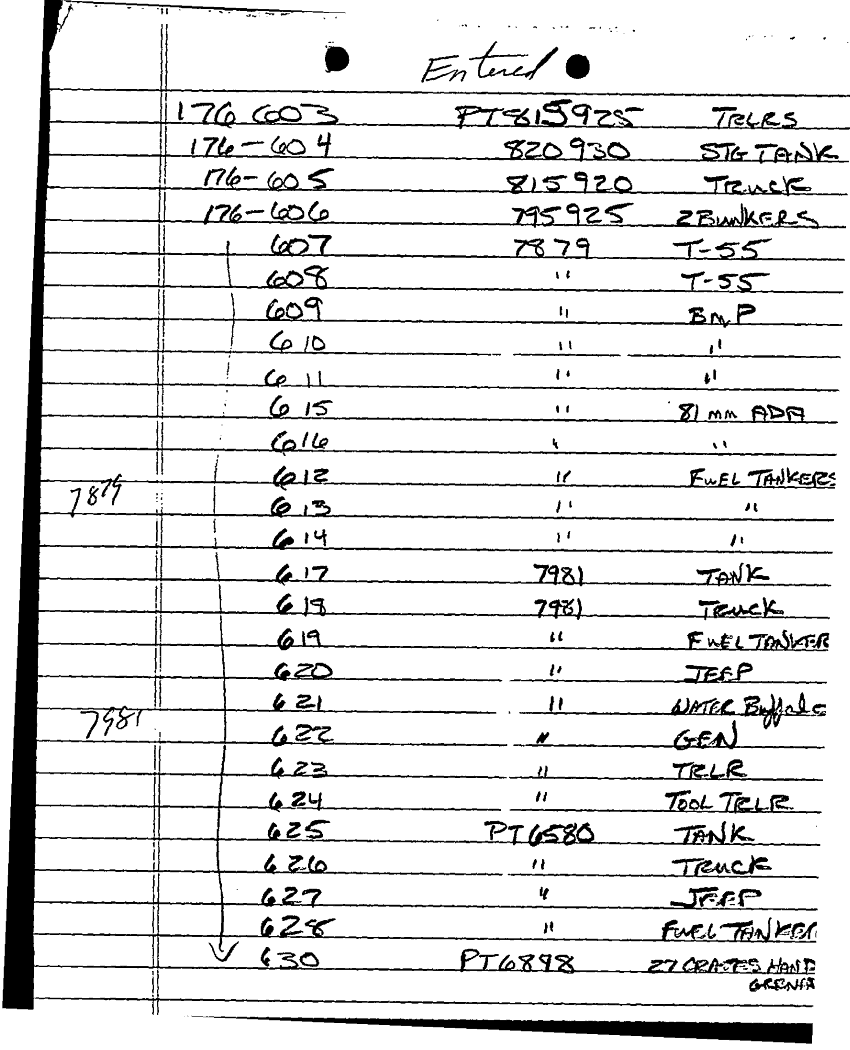 Entered
176 603 PT815925 TRLRS
176-604 820930 STG TANK
176-605 815920 TRUCK
176-606 795925 2 BUNKERS
607 7879 T-55
608 " T-55
609 " BMP
610 " "
611 " "
615 " 81 mm ADA
616 " "
612 " FUEL TANKERS
7879
613 " "
614 " "
617 7981 TANK
618 7981 TRUCK
619 " FUEL TANKER
620 " JEEP
621 " WATER Buffalo
7981
622 " GEN
623 " TRLR
624 " TOOL TRLR
625 PT6580 TANK
626 " TRUCK
627 " JEEP
628 " FUEL TANKER
630 PT6898 27 CRATES HAND
GRENA